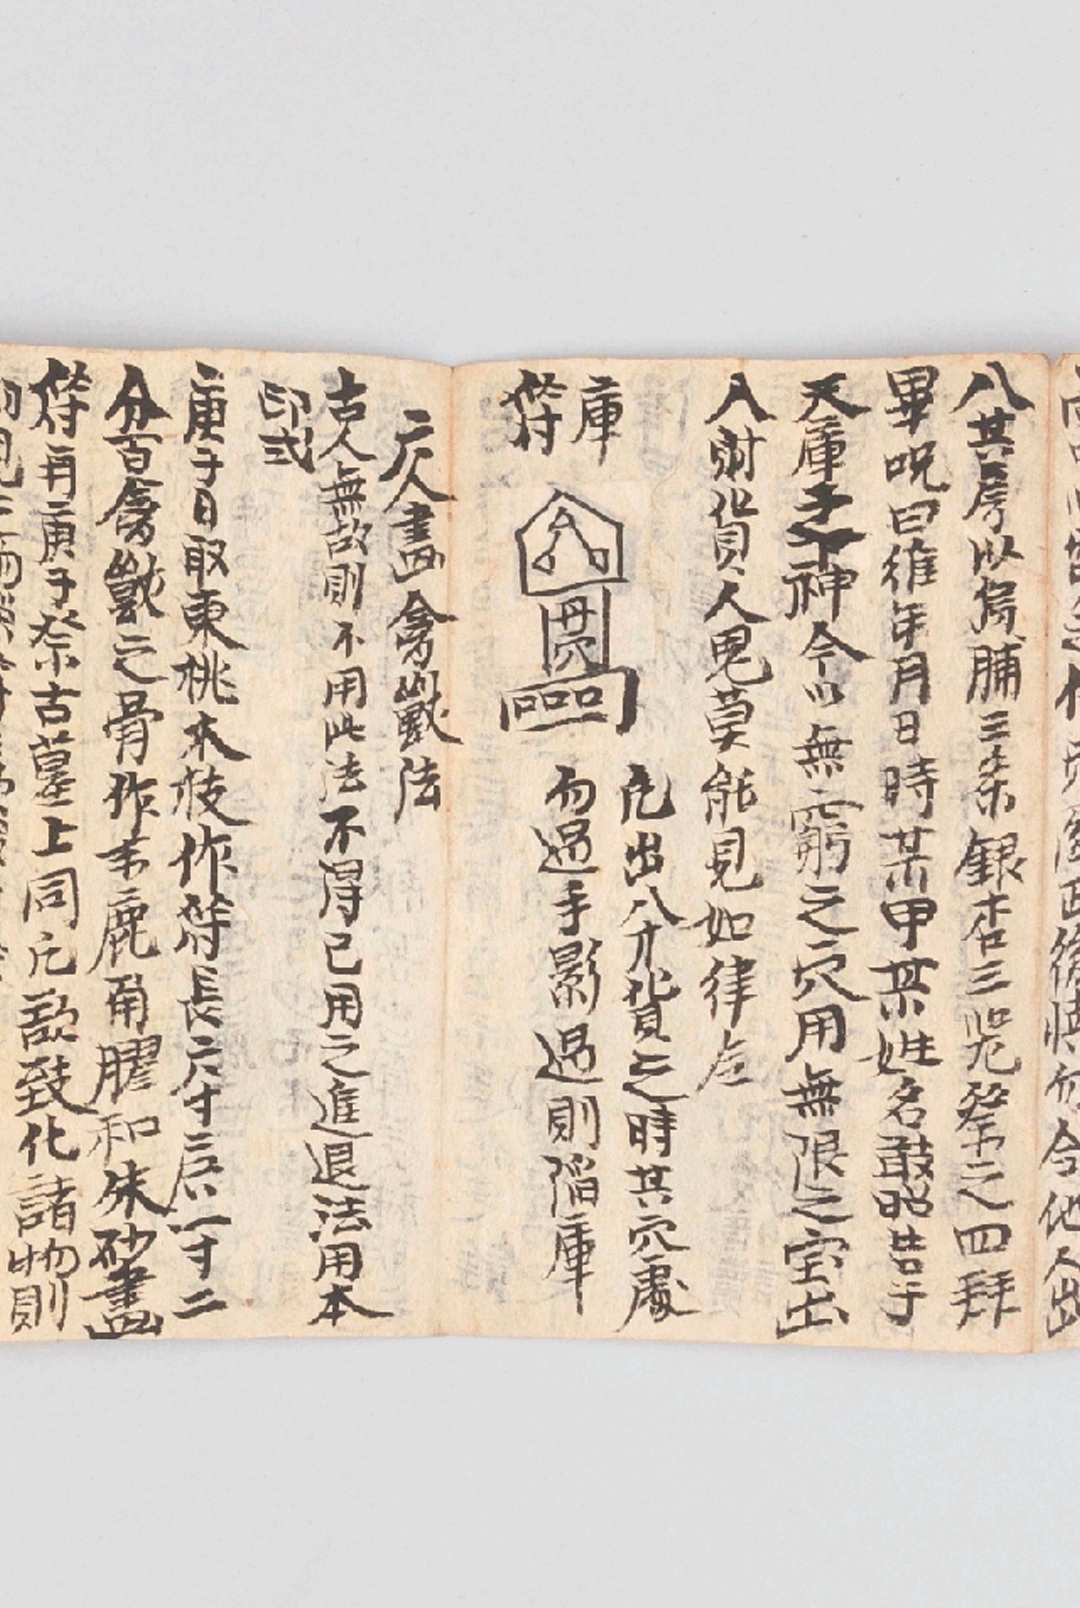 八其房以烏脯三条銀杏三觥祭之四拜
畢呪曰維年月日時某甲某姓名敢昭告于
天庫之神今以無窮之穴用無限之宝出
入財貨人鬼莫能見如律令
庫
符
凡出入才貨之時其穴處
勿過手影過則陷庫
人畫禽獸法
古人無故則不用此法不得已用之進退法用本
印式
庚子日取東桃木枝作符長六寸廣一寸二
分百禽獸之骨作末鹿角膠和朱砂畫
符再庚子祭古墓上同凡欲致化諸物則